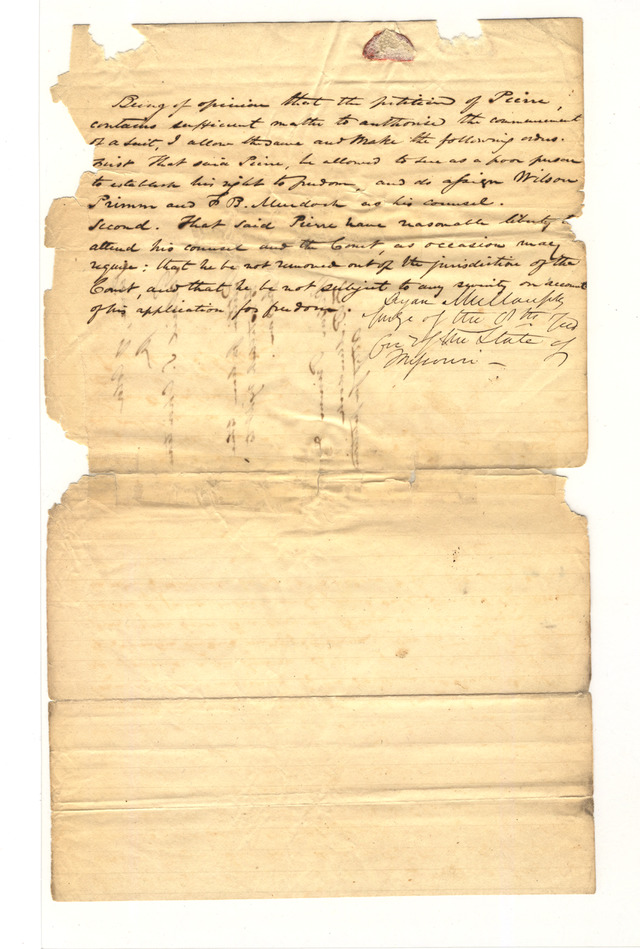 Being of opinion that the petition of Pierre,
contains sufficient matter to authorise the commencement
of a suit, I allow the same and make the following orders.
First That said Pierre, be allowed to sue as a poor person
to establish his right to freedom, and do assign Wilson
Primm and F B. Murdoch as his counsel.
Second. That said Pierre have reasonable liberty to
attend his counsel and the Court, as occasion may
require; that he be not removed out of the jurisdiction of the
Court, and that he be not subject to any severity on account
of his application for freedom
Bryan Mullanphy
Judge of the 8th Jud
Cir of the State of
Missouri —